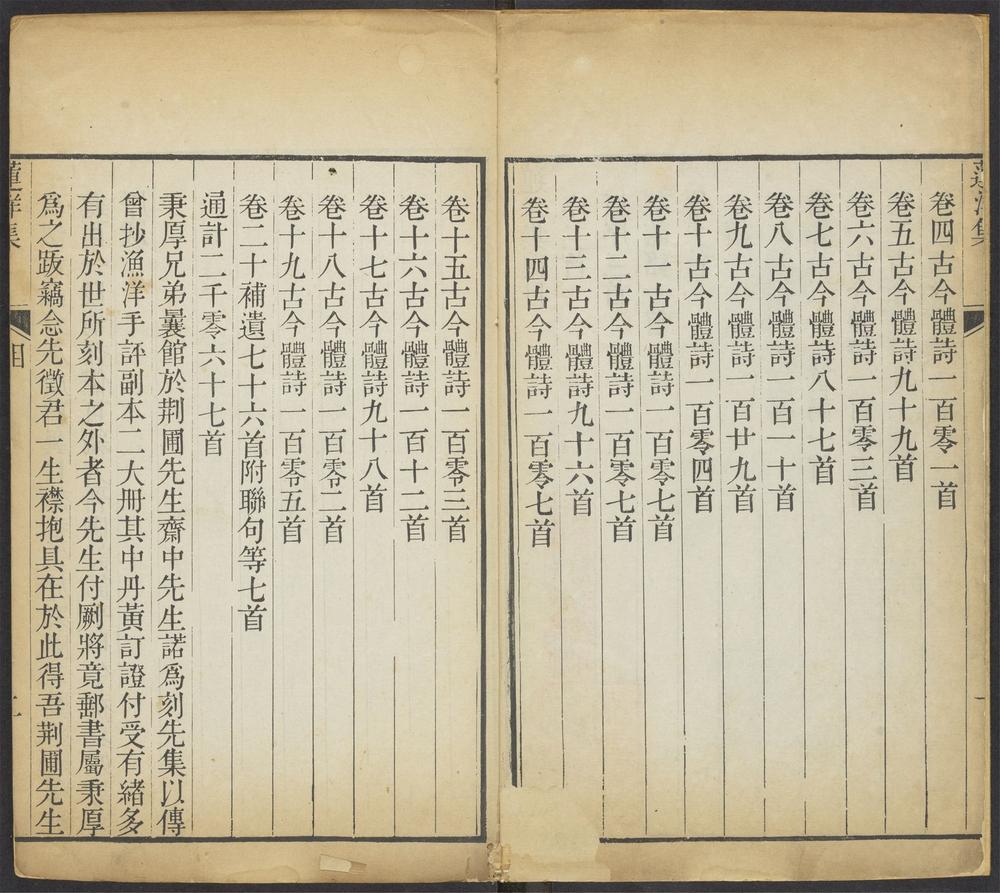 卷四古今體詩一百零一首
卷五古今體詩九十九首
卷六古今體詩一百零三首
卷七古今體詩八十七首
卷八古今體詩一百一十首
卷九古今體詩一百廿九首
卷十古今體詩一百零四首
卷十一古今體詩一百零七首
卷十二古今體詩一百零七首
卷十三古今體詩九十六首
卷十四古今體詩一百零七首
卷十五古今體詩一百零三首
卷十六古今體詩一百十二首
卷十七古今體詩九十八首
卷十八古今體詩一百零二首
卷十九古今體詩一百零五首
卷二十補遺七十六首附聯句等七首
通計二千零六十七首
秉厚兄弟曩館於荆圃先生齋中先生諾爲刻先集以傳
曾抄漁洋手評副本二大冊其中丹黃訂證付受有緒多
有出於世所刻本之外者今先生付劂將竟郵書屬秉厚
爲之跋竊念先徵君一生襟抱具在於此得吾荆圃先生
蓮洋集
目
二